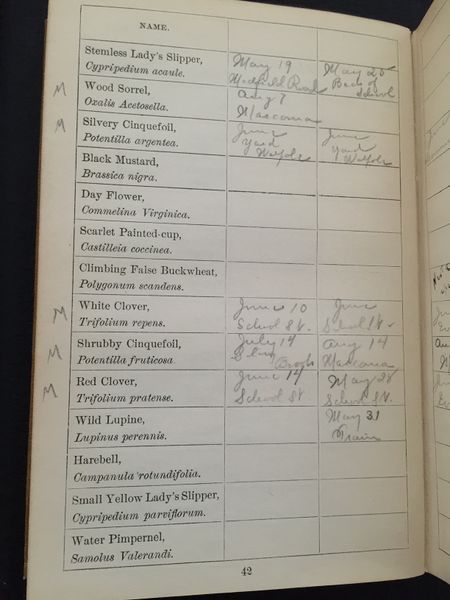 NAME.
Stemless Lady's Slipper, May 19 May 25
Cypripedium acaule. Medfield Road Back of School
M Wood Sorrel, Aug 7
Oxalis Acetosella. Mascoma
M Silvery Cinquefoil, June June
Potentilla argentea. Yard Walpole Yard Walpole
Black Mustard,
Brassica nigra.
Day Flower,
Commelina Virginica.
Scarlet Painted-cup,
Castilleia coccinea.
Climbing False Buckwheat,
Polygonum scandens.
M White Clover, June 10 June
Trifolium repens. School St. School St.
M Shrubby Cinquefoil, July 14 Aug 14
Potentilla fruticosa. Brook Mascoma
M Red Clover, June 14 May 28
Trifolium pratense. School St. School St.
Wild Lupine, May 31
Lupinus perennis. Train
Harebell,
Campanula rotundifolia.
Small Yellow Lady's Slipper,
Cypripedium parviflorum.
Water Pimpernel,
Samolus Valerandi.
42